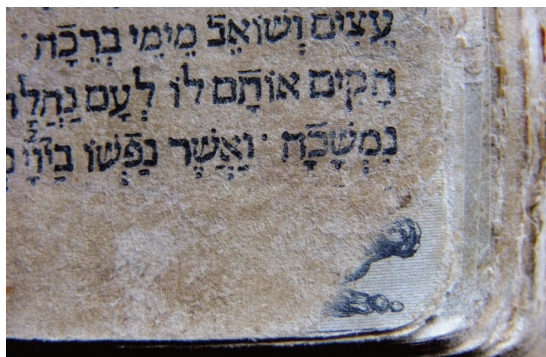 עֵצִים וְשׁוֹאֵב מֵימֵי בְרֵכָה ·
הָקִים אוֹתָם לוֹ לְעָם נַחֲלָה
נִמְשָׁכָה · וַאֲשֶׁר נַפְשׁוֹ